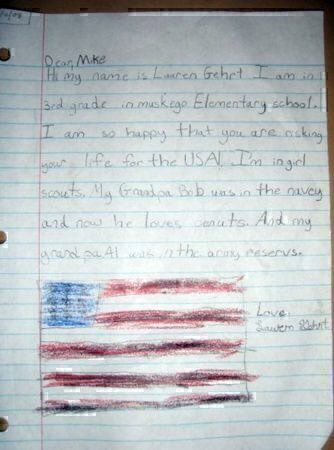 Dear, Mike
Hi my name is Lauren Gehrt I am in
3rd grade in muskego Elementary school.
I am so happy that you are risking
your life for the USA! I'm in girl
scouts. My Grandpa Bob was in the navey
and now he loves donuts. And my
grandpa Al was in the army reservs.
Love,
Lauren Gehrt